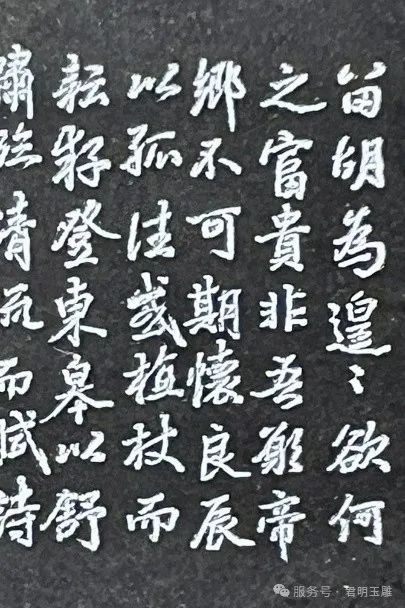 留胡為遑〻欲何
之富貴非吾願帝
鄉不可期懷良辰
以孤往或植杖而
耘耔登東皋以舒
嘯臨清流而賦詩
服务号 · 君明玉雕